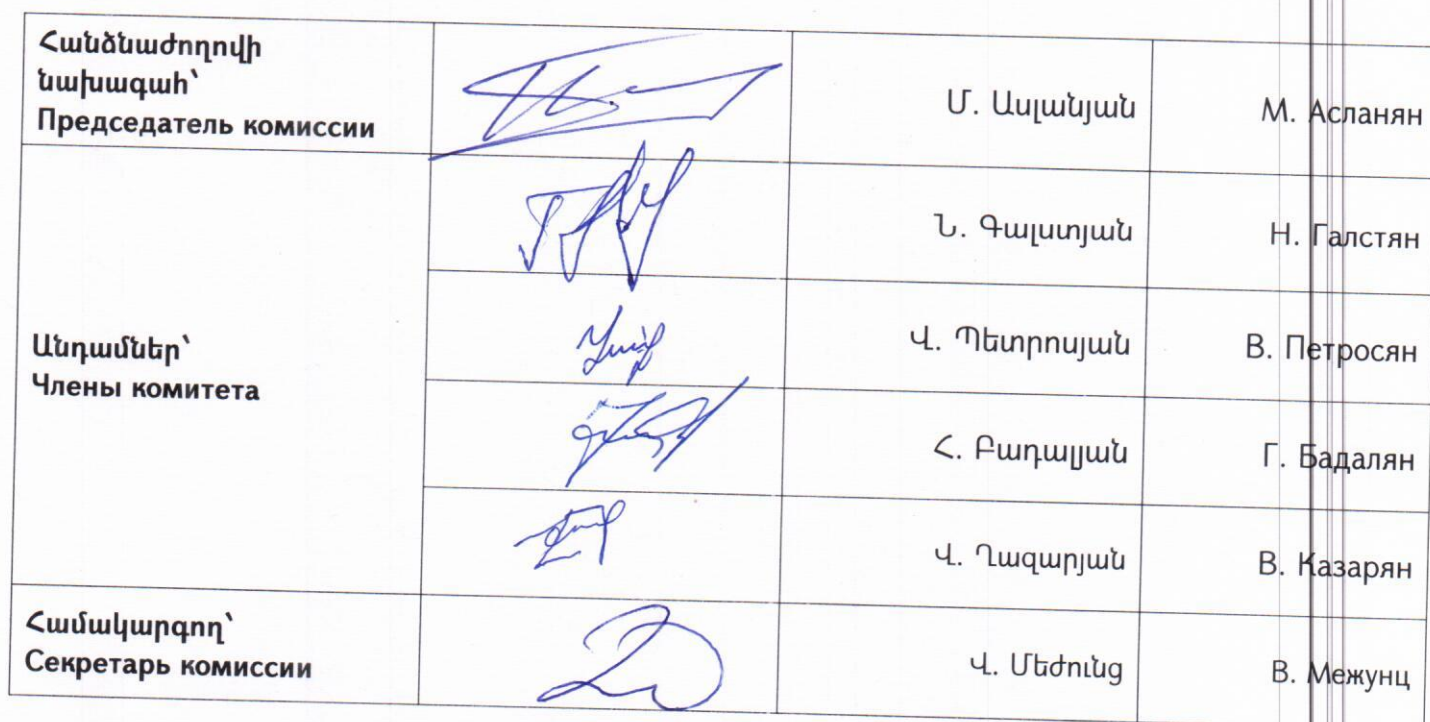 Հանձնաժողովի
նախագահ՝
Председатель комиссии
Մ. Ասլանյան
М. Асланян
Ն. Գալստյան
Н. Галстян
Անդամներ՝
Члены комитета
Վ. Պետրոսյան
В. Петросян
Հ. Բադալյան
Г. Бадалян
Վ. Ղազարյան
В. Казарян
Համակարգող՝
Секретарь комиссии
Վ. Մեժունց
В. Межунц